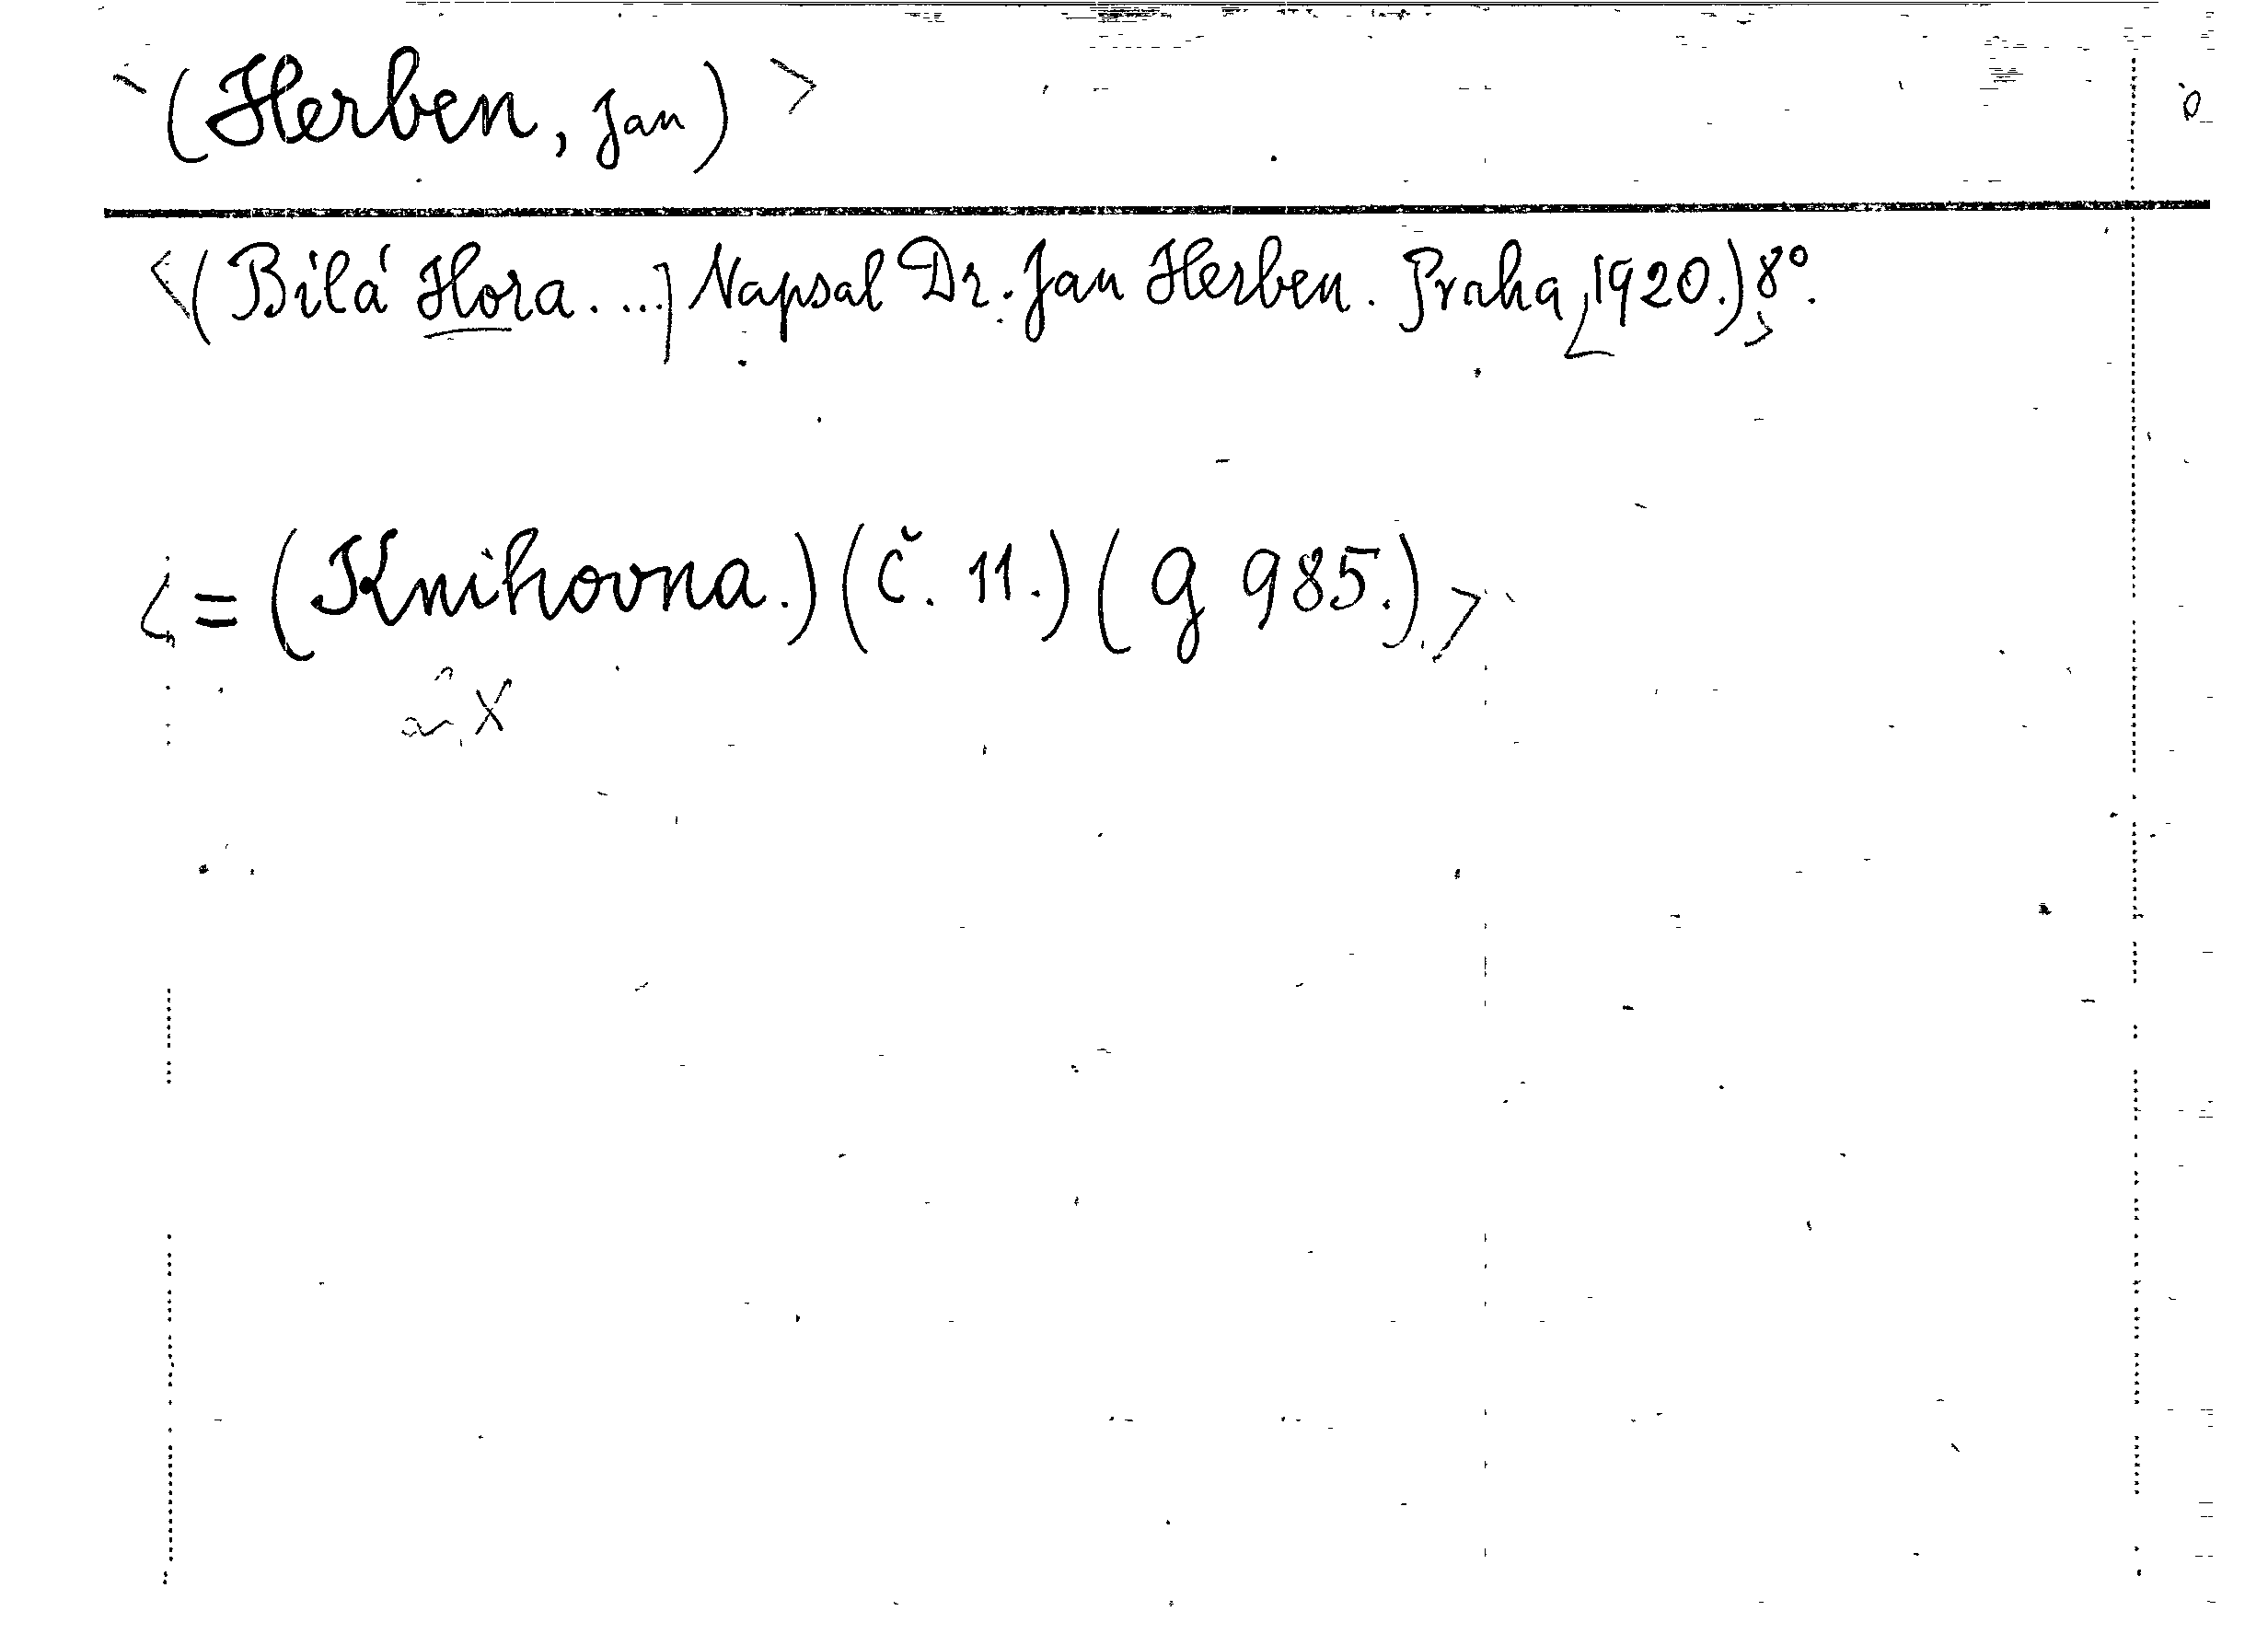 <(Herben, Jan)>
<(Bílá Hora....] Napsal Dr. Jan Herben. Praha, 1920.) 8°.
<=(Knihovna.)(č. 11.)(g 985.)>